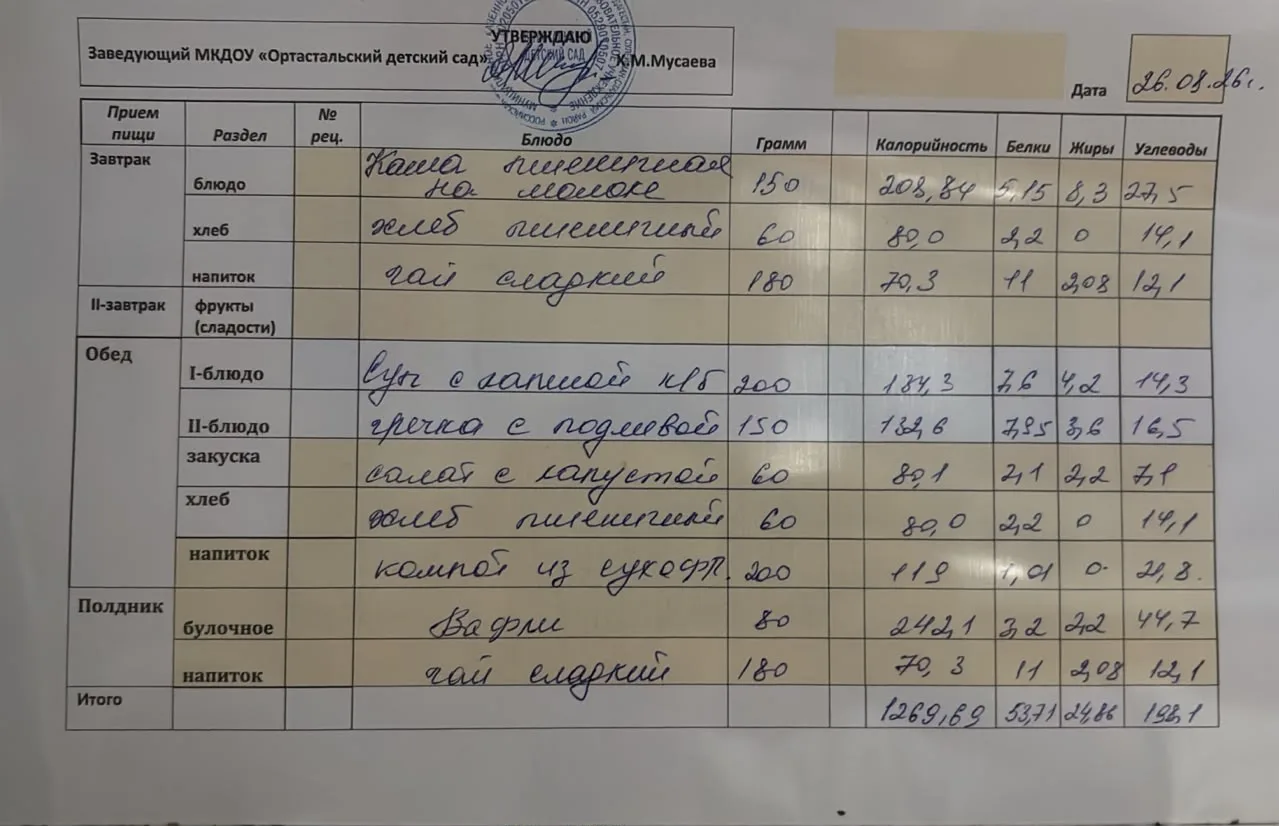 УТВЕРЖДАЮ
Заведующий МКДОУ «Ортастальский детский сад» Х.М.Мусаева
ДЕТСКИЙ САД
Дата 26.08.26г.
Прием пищи Раздел № рец. Блюдо Грамм Калорийность Белки Жиры Углеводы
Завтрак блюдо Каша пшеничная на молоке 150 208,84 5,15 8,3 27,5
хлеб хлеб пшеничный 60 80,0 2,2 0 14,1
напиток чай сладкий 180 70,3 11 2,08 12,1
II-завтрак фрукты (сладости)
Обед I-блюдо Суп с лапшой к/б 200 184,3 7,6 4,2 14,3
II-блюдо гречка с подливой 150 132,6 7,95 3,6 16,5
закуска салат с капустой 60 80,1 2,1 2,2 7,1
хлеб хлеб пшеничный 60 80,0 2,2 0 14,1
напиток компот из сухофр. 200 119 1,01 0 21,8
Полдник булочное Вафли 80 242,1 3,2 2,2 44,7
напиток чай сладкий 180 70,3 11 2,08 12,1
Итого 1269,69 53,71 24,86 198,1